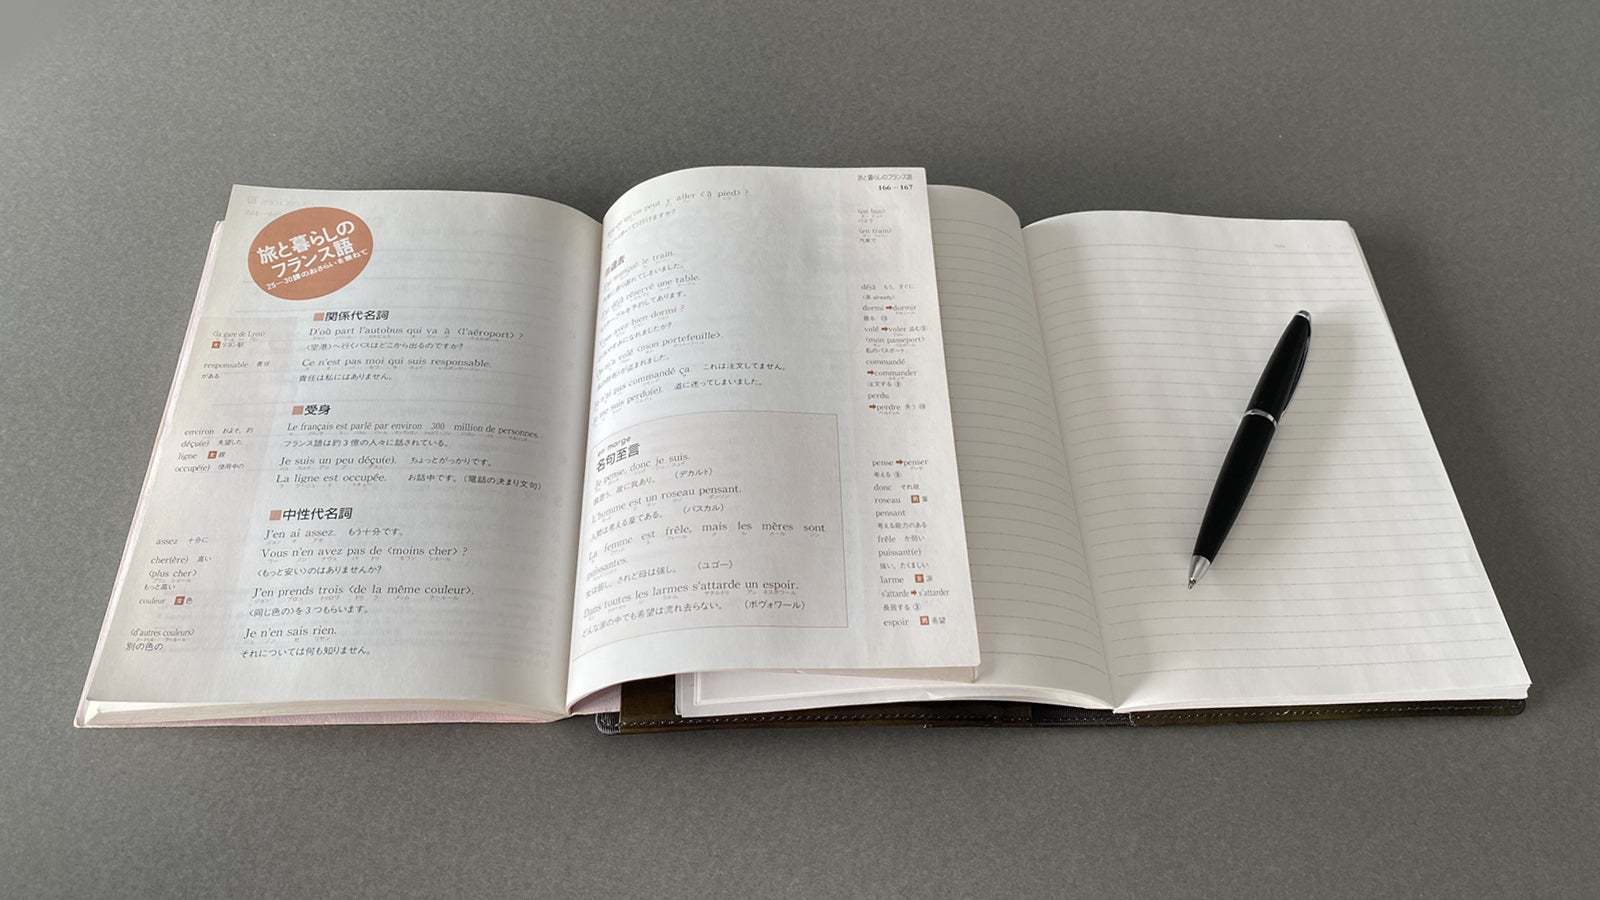 旅と暮らしの
フランス語
25―30課のおさらいを兼ねて
■関係代名詞
〈la gare de Lyon〉
女 リヨン駅
D'où part l'autobus qui va à 〈l'aéroport〉 ?
〈空港〉へ行くバスはどこから出るのですか?
responsable 責任
がある
Ce n'est pas moi qui suis responsable.
責任は私にはありません。
■受身
environ およそ, 約
Le français est parlé par environ 300 million de personnes.
フランス語は約3億の人々に話されている。
déçu(e) 失望した
Je suis un peu déçu(e). ちょっとがっかりです。
ligne 女 線
occupé(e) 使用中の
La ligne est occupée. お話中です。(電話の決まり文句)
■中性代名詞
assez 十分に
J'en ai assez. もう十分です。
cher(ère) 高い
〈plus cher〉
もっと高い
Vous n'en avez pas de 〈moins cher〉 ?
〈もっと安い〉のはありませんか?
couleur 女 色
J'en prends trois 〈de la même couleur〉.
〈同じ色の〉を3つもらいます。
〈d'autres couleurs〉
別の色の
Je n'en sais rien.
それについては何も知りません。
旅と暮らしのフランス語
166―167
qu'on peut y aller 〈à pied〉 ?
行けますか?
〈en bus〉
バスで
〈en train〉
汽車で
■過去
manqué le train.
遅れてしまいました。
déjà réservé une table.
テーブルを予約してあります。
avez bien dormi ?
になれましたか?
volé 〈mon portefeuille〉.
が盗まれました。
pas commandé ça. これは注文してません。
me suis perdu(e). 道に迷ってしまいました。
déjà もう, すぐに
(英 already)
dormi ➡dormir
眠る
volé ➡voler 盗む③
〈mon passeport〉
私のパスポート
commandé
➡commander
注文する③
perdu
➡perdre 失う
en marge
名句至言
Je pense, donc je suis.
我思う, 故に我あり。 (デカルト)
L'homme est un roseau pensant.
人間は考える葦である。 (パスカル)
La femme est frêle, mais les mères sont
puissantes.
女は弱し, されど母は強し。 (ユゴー)
Dans toutes les larmes s'attarde un espoir.
どんな涙の中でも希望は流れ去らない。 (ボヴォワール)
pense ➡penser
考える③
donc それ故
roseau 男 葦
pensant
考える能力のある
frêle か弱い
puissant(e)
強い, たくましい
larme 女 涙
s'attarde➡s'attarder
長居する③
espoir 男 希望